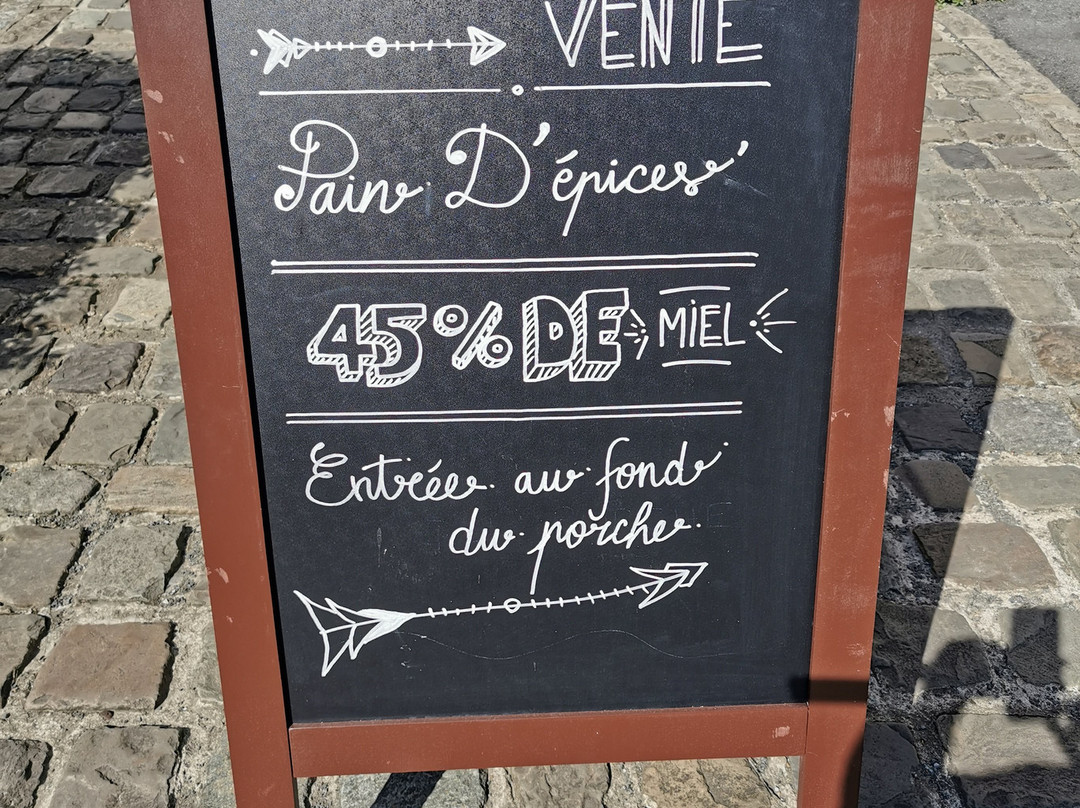 VENTE
Pain D'épices
45% DE MIEL
Entrée au fond
du porche.